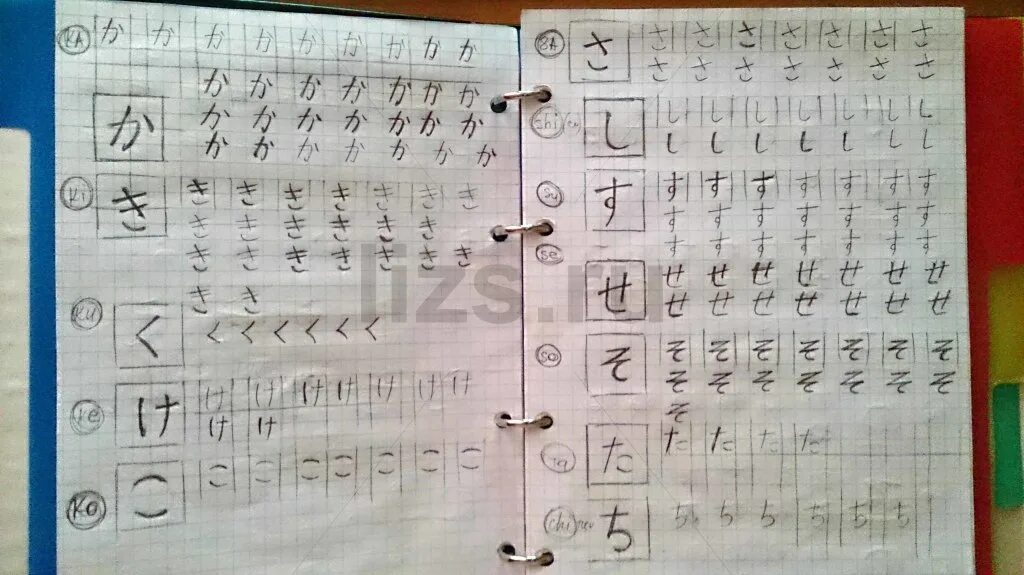 KA か か か か か か か か か
か か か か か か か
か か か か か か か か
か か か か か か か
Ki き き き き き き き き
き き き き き き
き き き き き き き
き き
KU く く く く く く く
け け け け け け け け
け け
KO こ こ こ こ こ こ こ こ
SA さ さ さ さ さ さ さ さ
さ さ さ さ さ さ さ
shi し し し し し し し し
し し し し し し し
su す す す す す す す す
す す す す す す す
す す す す す す す
se せ せ せ せ せ せ せ せ
せ せ せ せ せ せ せ
so そ そ そ そ そ そ そ そ
そ そ そ そ そ そ そ
そ
た た た た た
chi ち ち ち ち ち ち ち
lizs.ru